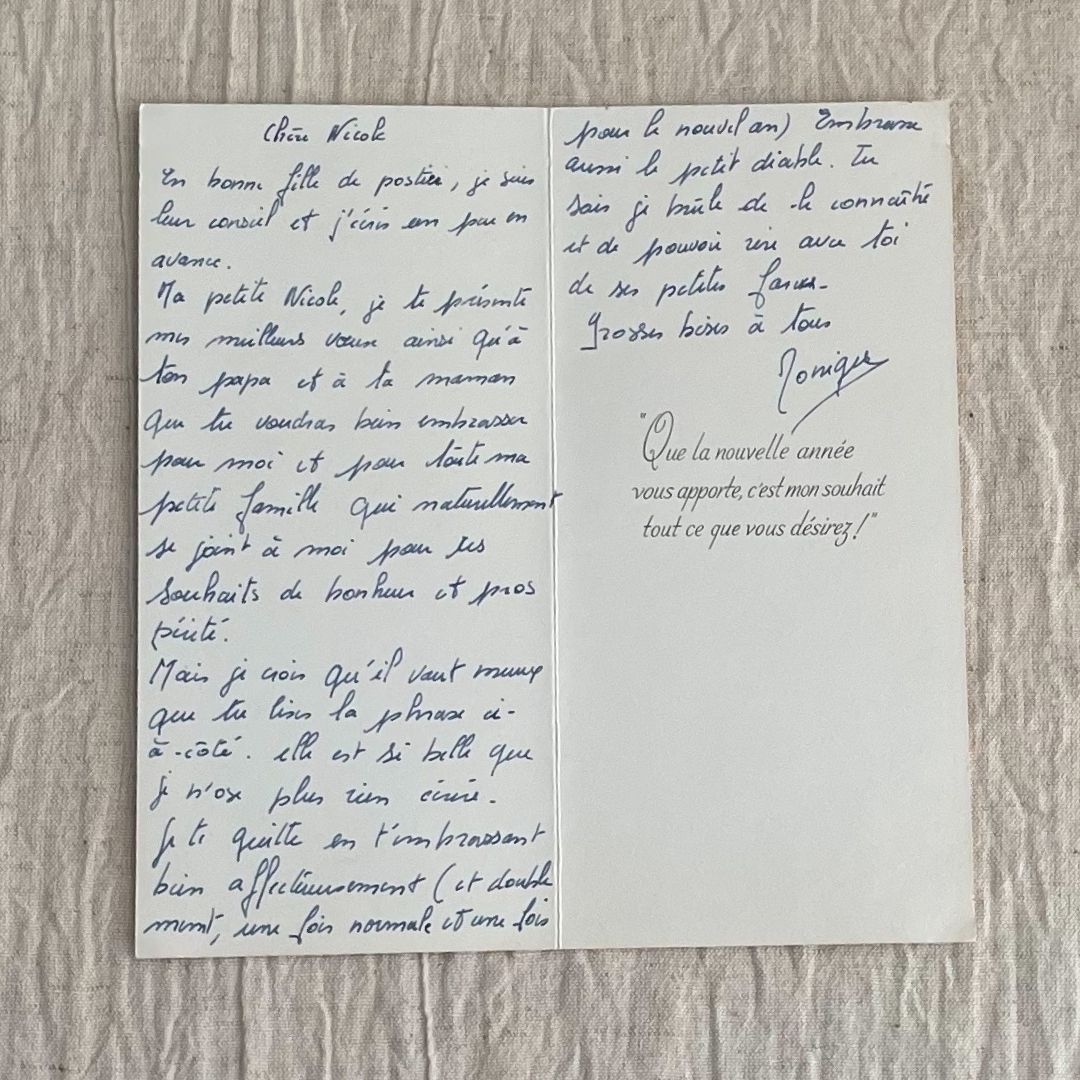 Chère Nicole
En bonne fille de postier, je suis
leur conseil et j'écris un peu en
avance.
Ma petite Nicole, je te présente
mes meilleurs vœux ainsi qu'à
ton papa et à ta maman
que tu voudras bien embrasser
pour moi et pour toute ma
petite famille qui naturellement
se joint à moi pour les
souhaits de bonheur et pros
périté.
Mais je crois qu'il vaut mieux
que tu lises la phrase ci-
à-côté. elle est si belle que
je n'ose plus rien écrire.
Je te quitte en t'embrassant
bien affectueusement (et double
ment, une fois normale et une fois
pour le nouvel an) Embrasse
aussi le petit diable. Tu
sais je brûle de le connaître
et de pouvoir rire avec toi
de ses petites farces.
Grosses bises à tous
"Que la nouvelle année
vous apporte, c'est mon souhait
tout ce que vous désirez!"